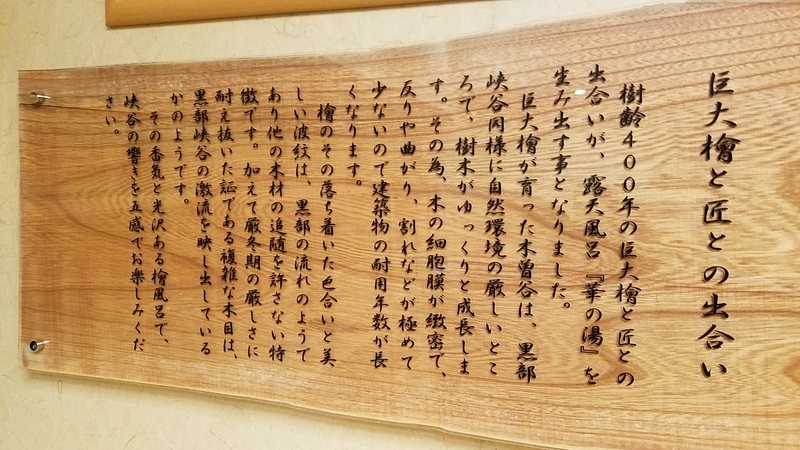 巨大檜と匠との出合い
樹齢400年の巨大檜と匠との
出合いが、露天風呂『華の湯』を
生み出す事となりました。
巨大檜が育った木曽谷は、黒部
峡谷同様に自然環境の厳しいとこ
ろで、樹木がゆっくりと成長しま
す。その為、木の細胞膜が緻密で、
反りや曲がり、割れなどが極めて
少ないので建築物の耐用年数が長
くなります。
檜のその落ち着いた色合いと美
しい波紋は、黒部の流れのようで
あり他の木材の追随を許さない特
徴です。加えて厳冬期の厳しさに
耐え抜いた証である複雑な木目は、
黒部峡谷の激流を映し出している
かのようです。
その香気と光沢ある檜風呂で、
峡谷の響きを五感でお楽しみくだ
さい。